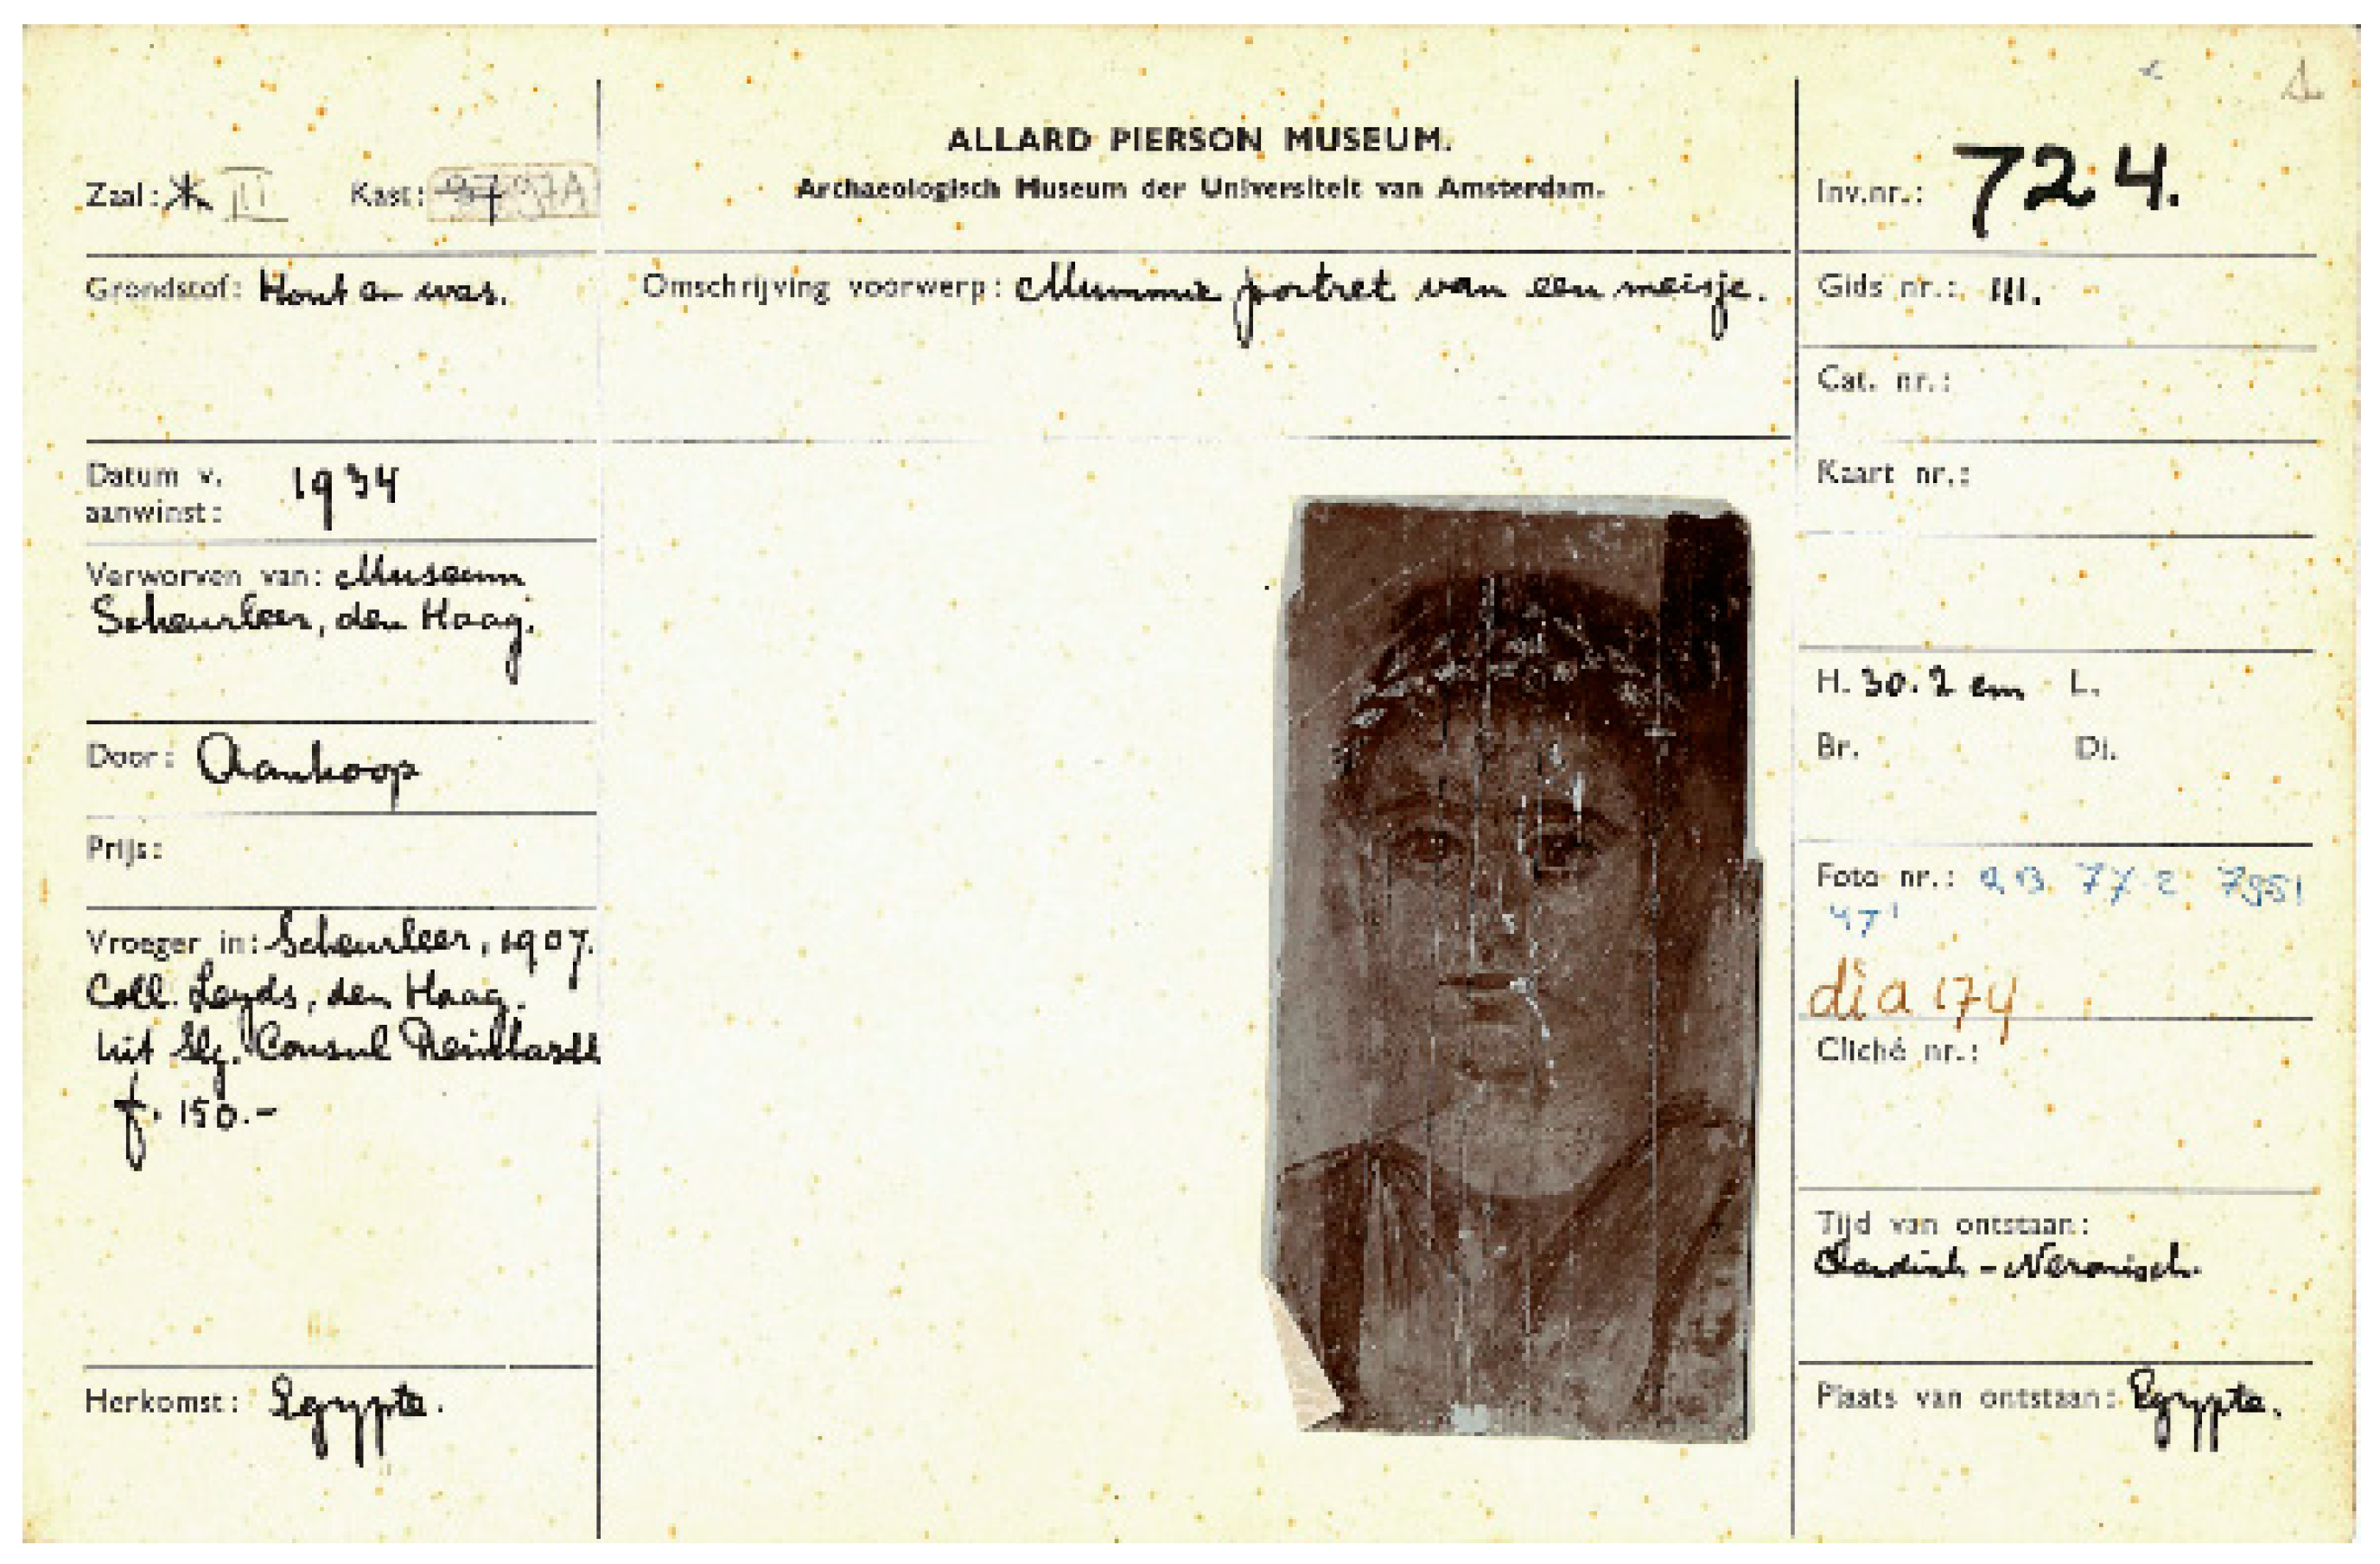 ALLARD PIERSON MUSEUM.
Archaeologisch Museum der Universiteit van Amsterdam.
Zaal: II Kast: 97 97A
Inv.nr.: 724.
Grondstof: Hout en was.
Omschrijving voorwerp: Mummie portret van een meisje.
Gids nr.: 111.
Cat. nr.:
Kaart nr.:
Datum v.
aanwinst: 1934
Verworven van: Museum
Scheurleer, den Haag.
Door: Aankoop
Prijs:
Vroeger in: Scheurleer, 1907.
Coll. Leyds, den Haag.
uit Slg. Consul Reinhardt
f. 150.-
Herkomst: Egypte.
H. 30.2 cm L.
Br. Di.
Foto nr.: 7851
47
dia 174
Cliché nr.:
Tijd van ontstaan:
Claudisch - Neronisch.
Plaats van ontstaan: Egypte.